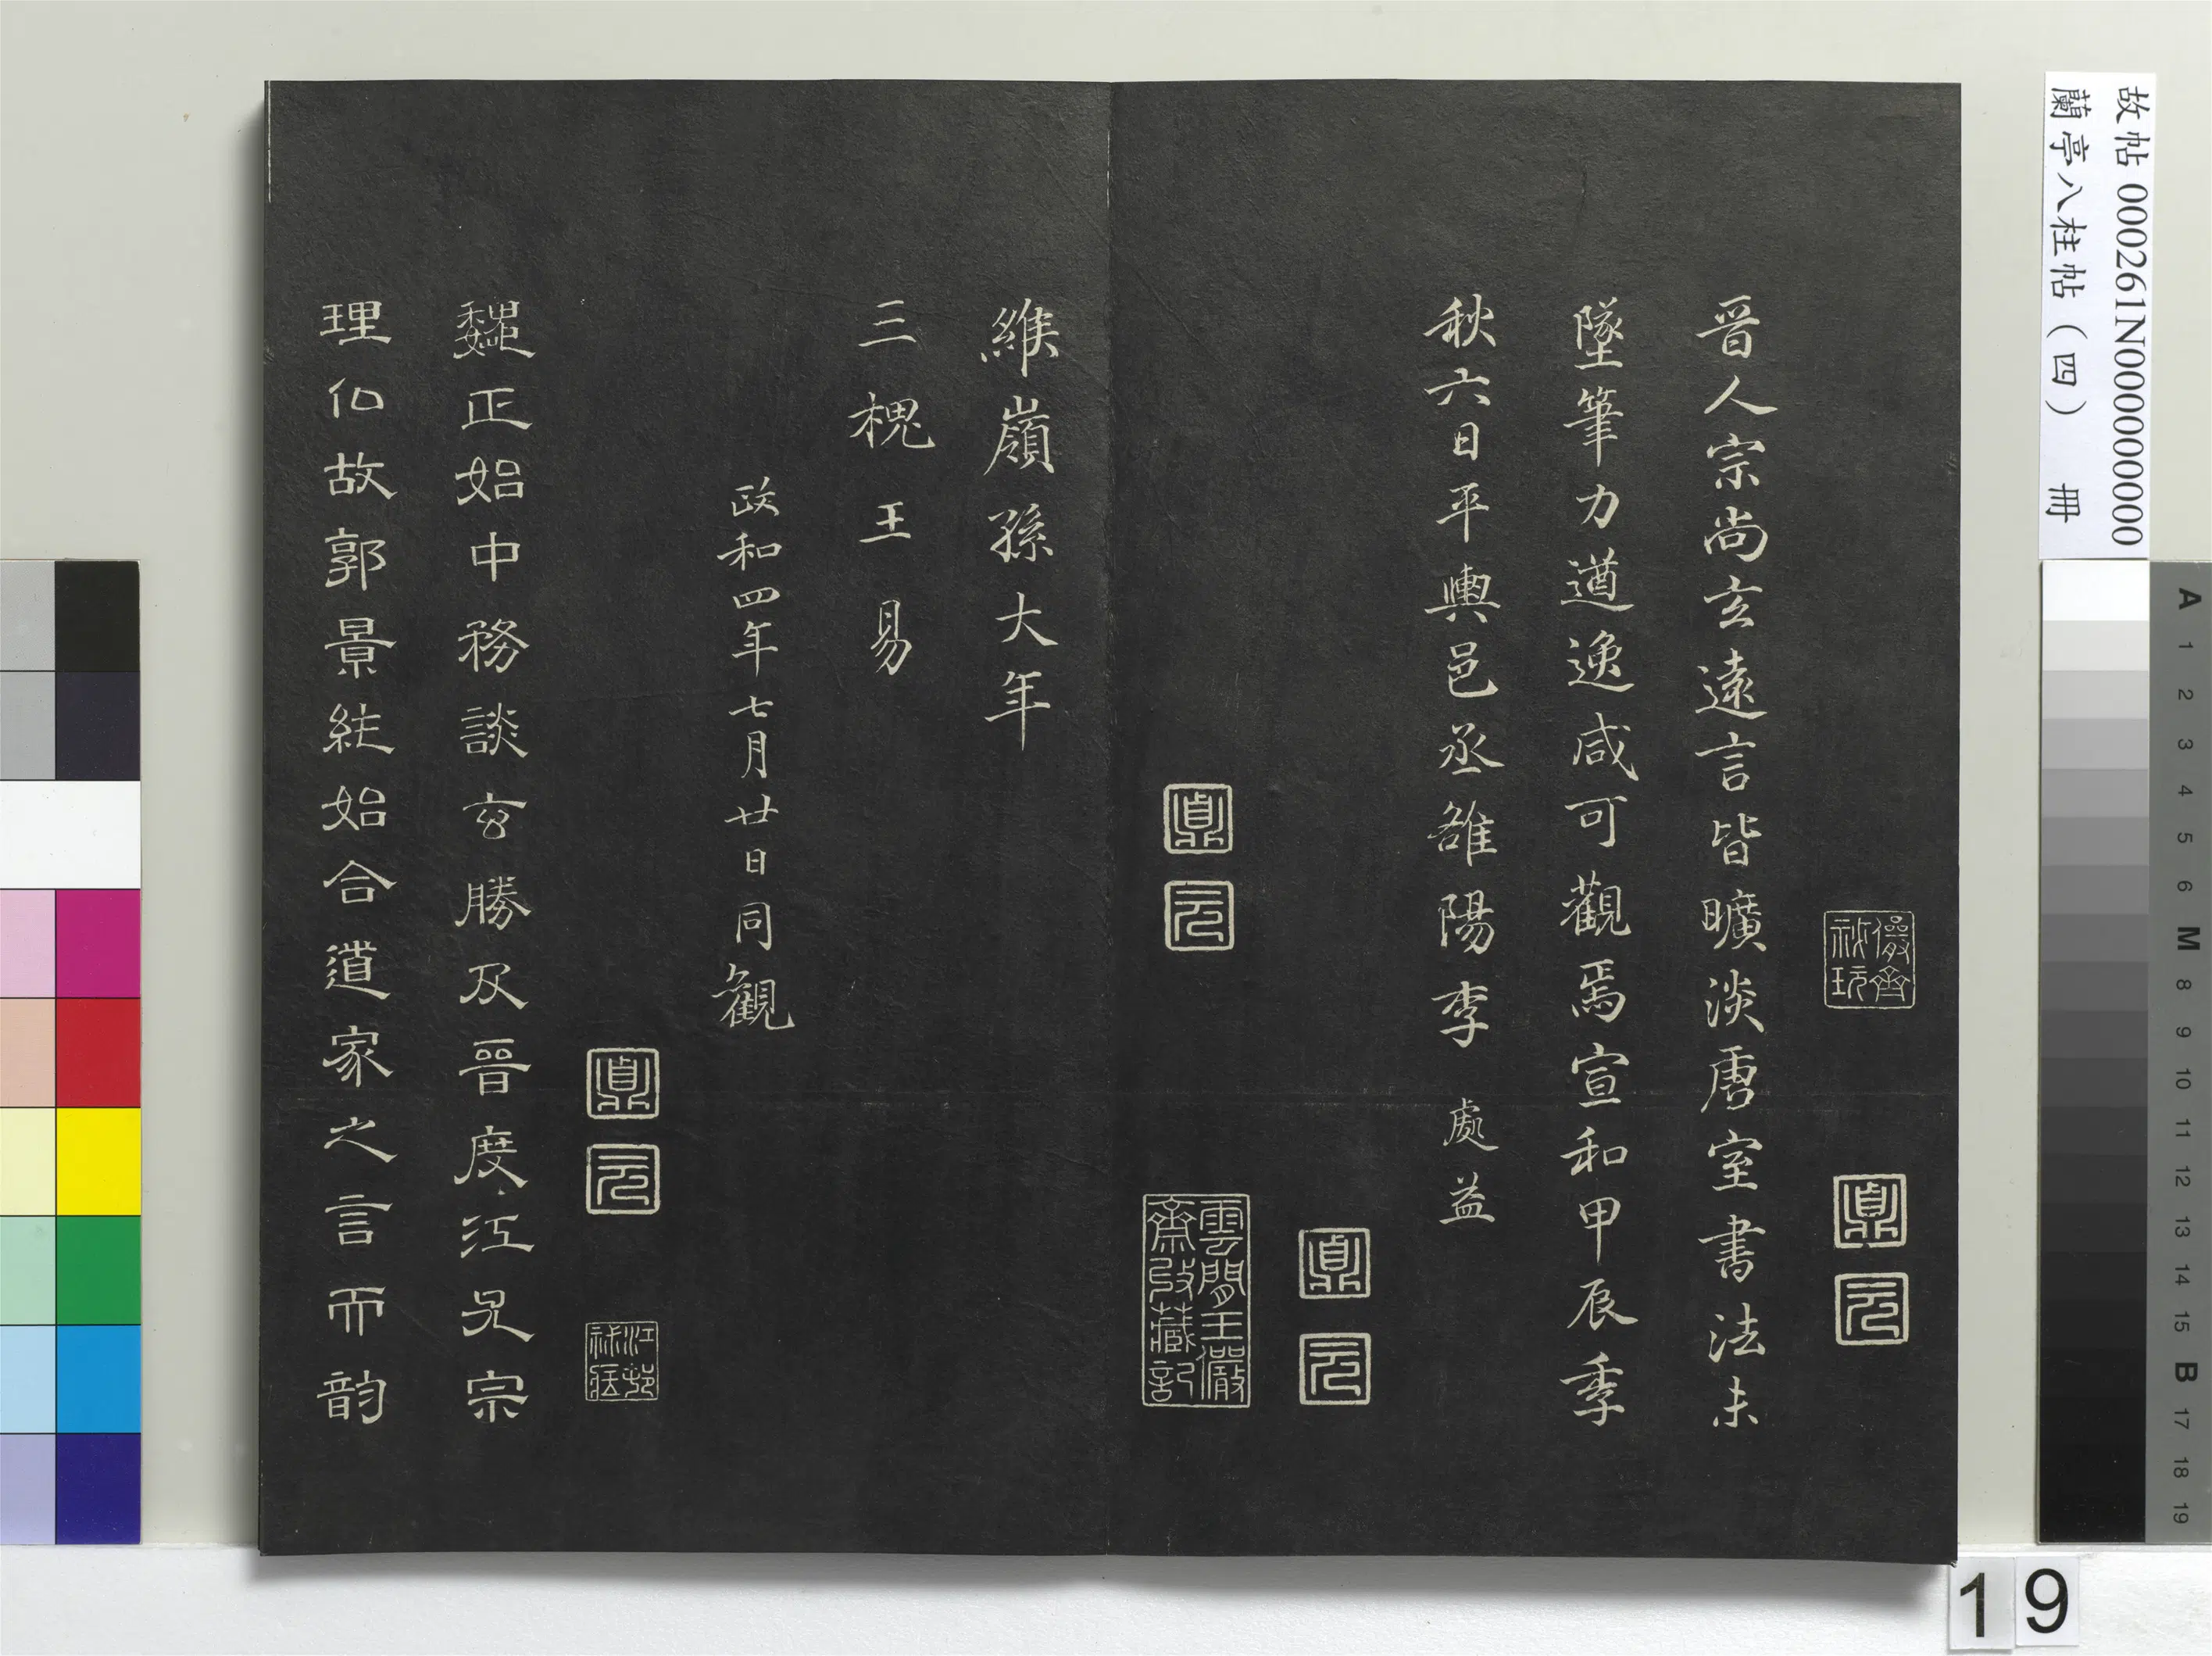 晉人宗尚玄遠言皆曠淡唐室書法未
墜筆力遒逸咸可觀焉宣和甲辰季
秋六日平輿邑丞雒陽李處益
維嶺孫大年
三槐王易
政和四年七月廿日同觀
魏正始中務談玄勝及晉度江尤宗
理仏故郭景純始合道家之言而韵
儼齋
秘玩
鼎
元
鼎
元
鼎
元
雲間王儼
齋收藏記
鼎
元
江邨
秘藏
故帖 000261N000000000
蘭亭八柱帖（四） 冊
A 1 2 3 4 5 6 M 8 9 10 11 12 13 14 15 B 17 18 19
19